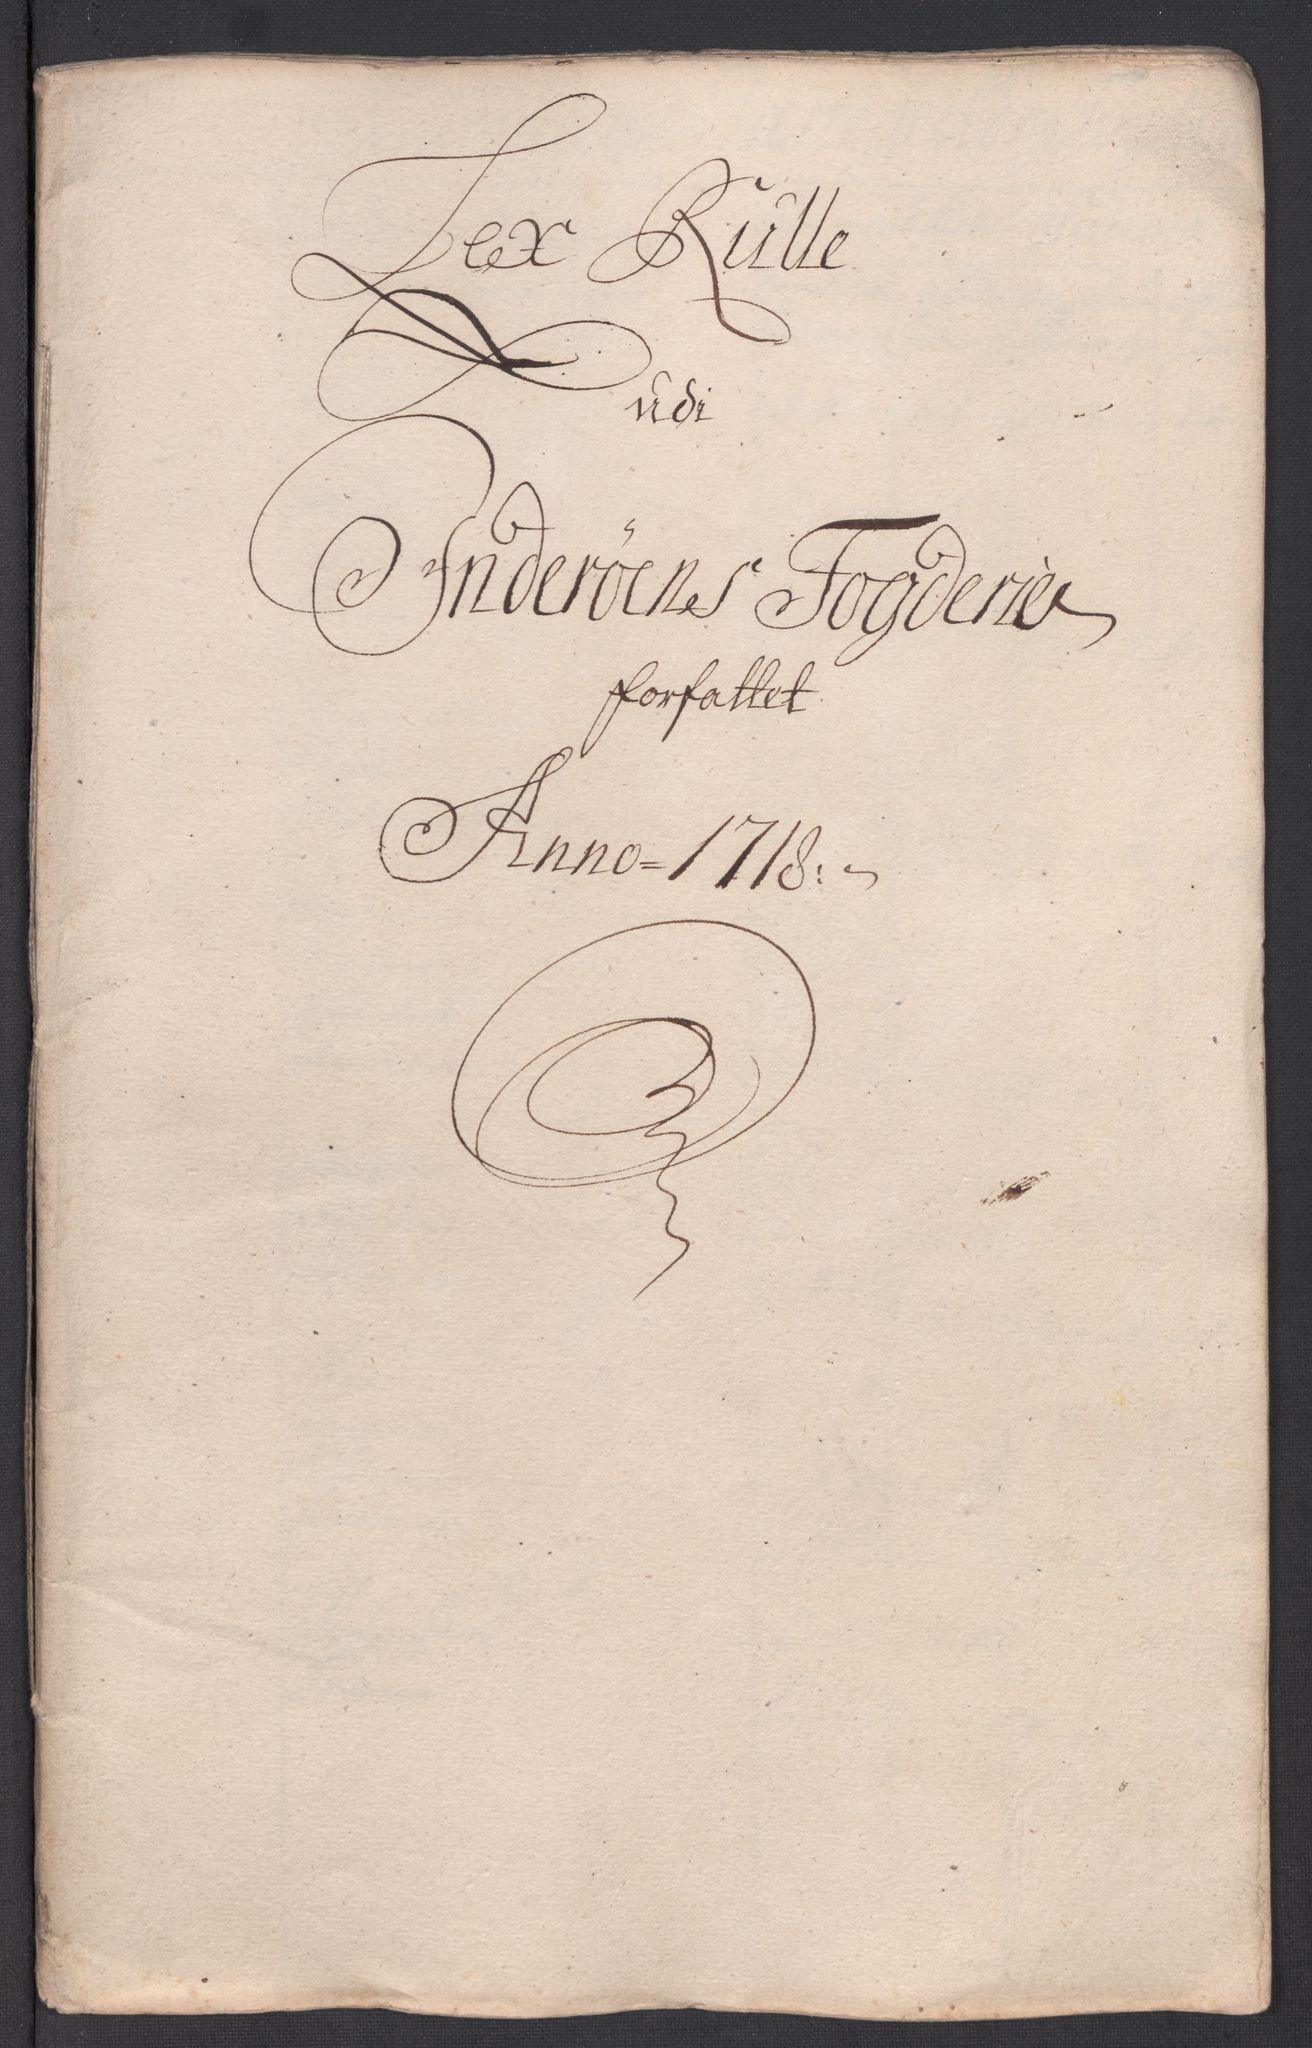 Lex Rulle
udi
Inderöens Fogderie
forfattet
Anno = 1718: